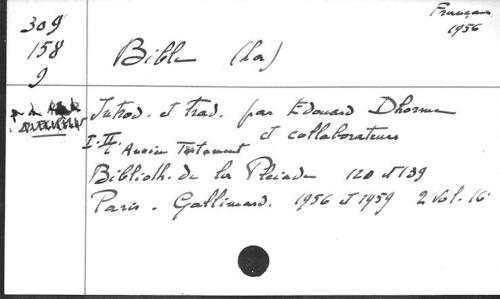 309
158
9
Français
1956
Bible (La)
Introd. et trad. par Edouard Dhorme
et collaborateurs
I-II. Ancien Testament
Biblioth. de la Pleiade 120 et 139
Paris. Gallimard. 1956 et 1959 2 vol. 16°